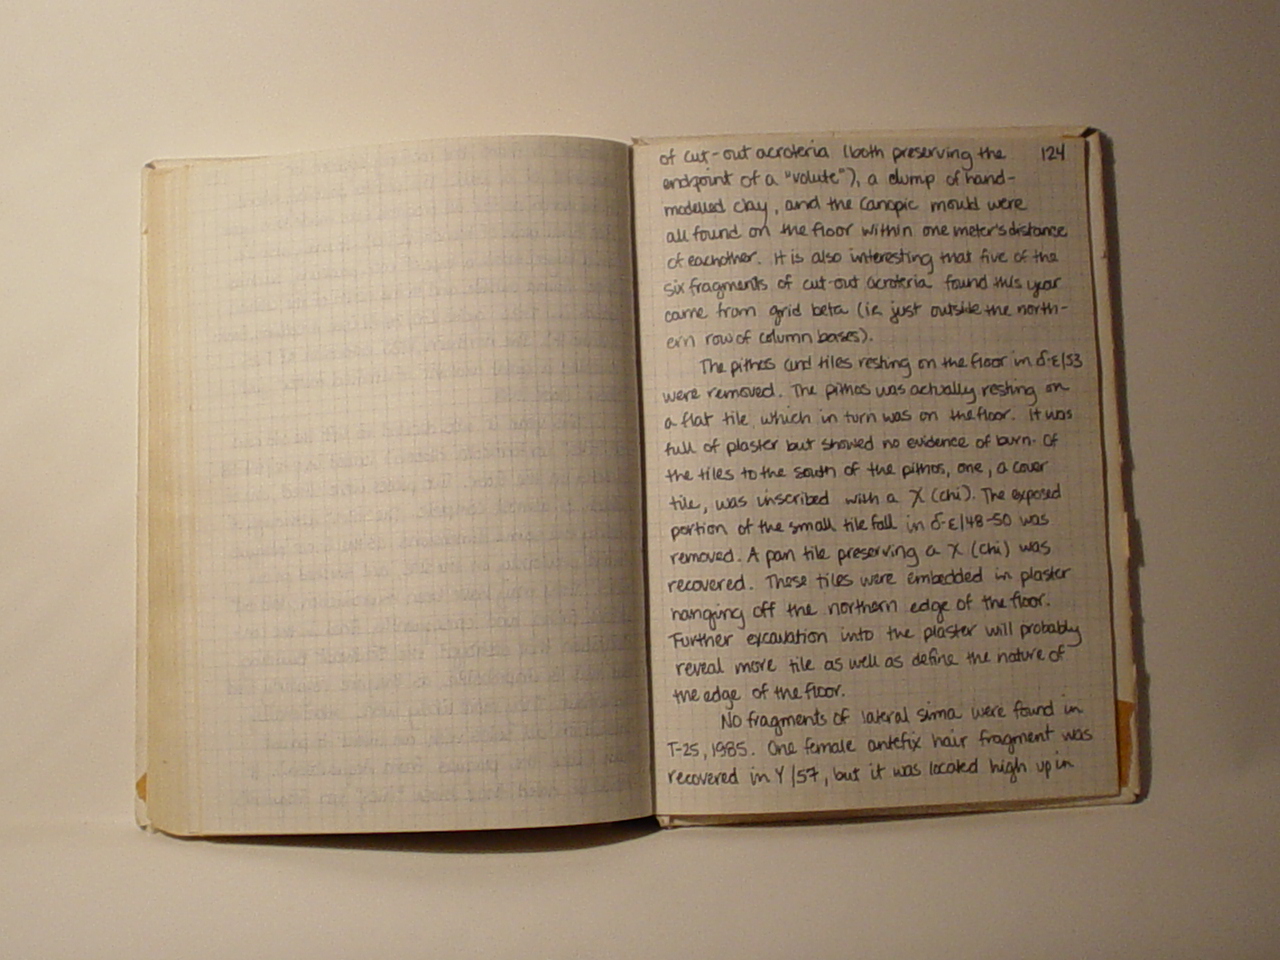 of cut-out acroteria (both preserving the 124
endpoint of a "volute"), a clump of hand-
modelled clay, and the Canopic mould were
all found on the floor within one meter's distance
of eachother. It is also interesting that five of the
six fragments of cut-out acroteria found this year
came from grid beta (ie just outside the north-
ern row of column bases).
The pithos and tiles resting on the floor in δ-ε/53
were removed. The pithos was actually resting on
a flat tile, which in turn was on the floor. It was
full of plaster but showed no evidence of burn. Of
the tiles to the south of the pithos, one, a cover
tile, was inscribed with a χ (chi). The exposed
portion of the small tile fall in δ-ε/48-50 was
removed. A pan tile preserving a χ (chi) was
recovered. These tiles were embedded in plaster
hanging off the northern edge of the floor.
Further excavation into the plaster will probably
reveal more tile as well as define the nature of
the edge of the floor.
No fragments of lateral sima were found in
T-25, 1985. One female antefix hair fragment was
recovered in Y/57, but it was located high up in